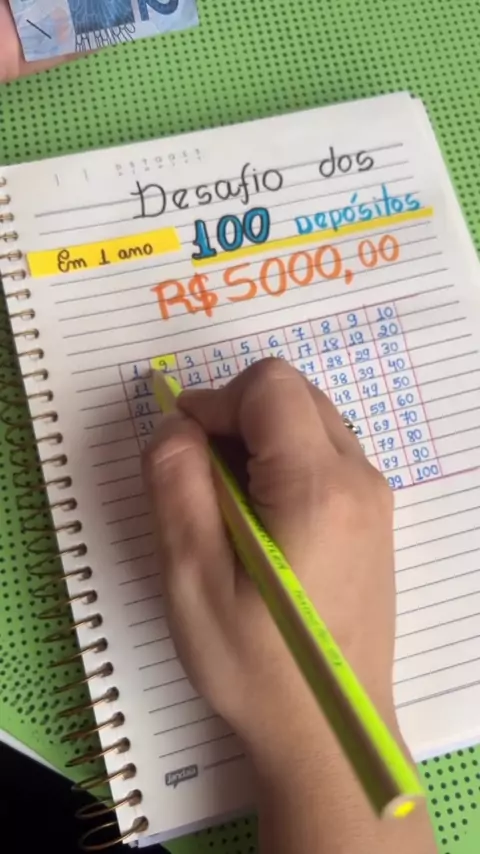 Desafio dos
Em 1 ano 100 DEPÓSitoS
R$5000,00
1 2 3 4 5 6 7 8 9 10
11 13 14 17 18 19 20
21 27 28 29 30
31 38 39 40
48 49 50
59 60
69 70
79 80
89 90
99 100
jandaia